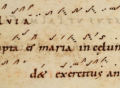 LVIA
pta et maria in celum
dæ exercitus an